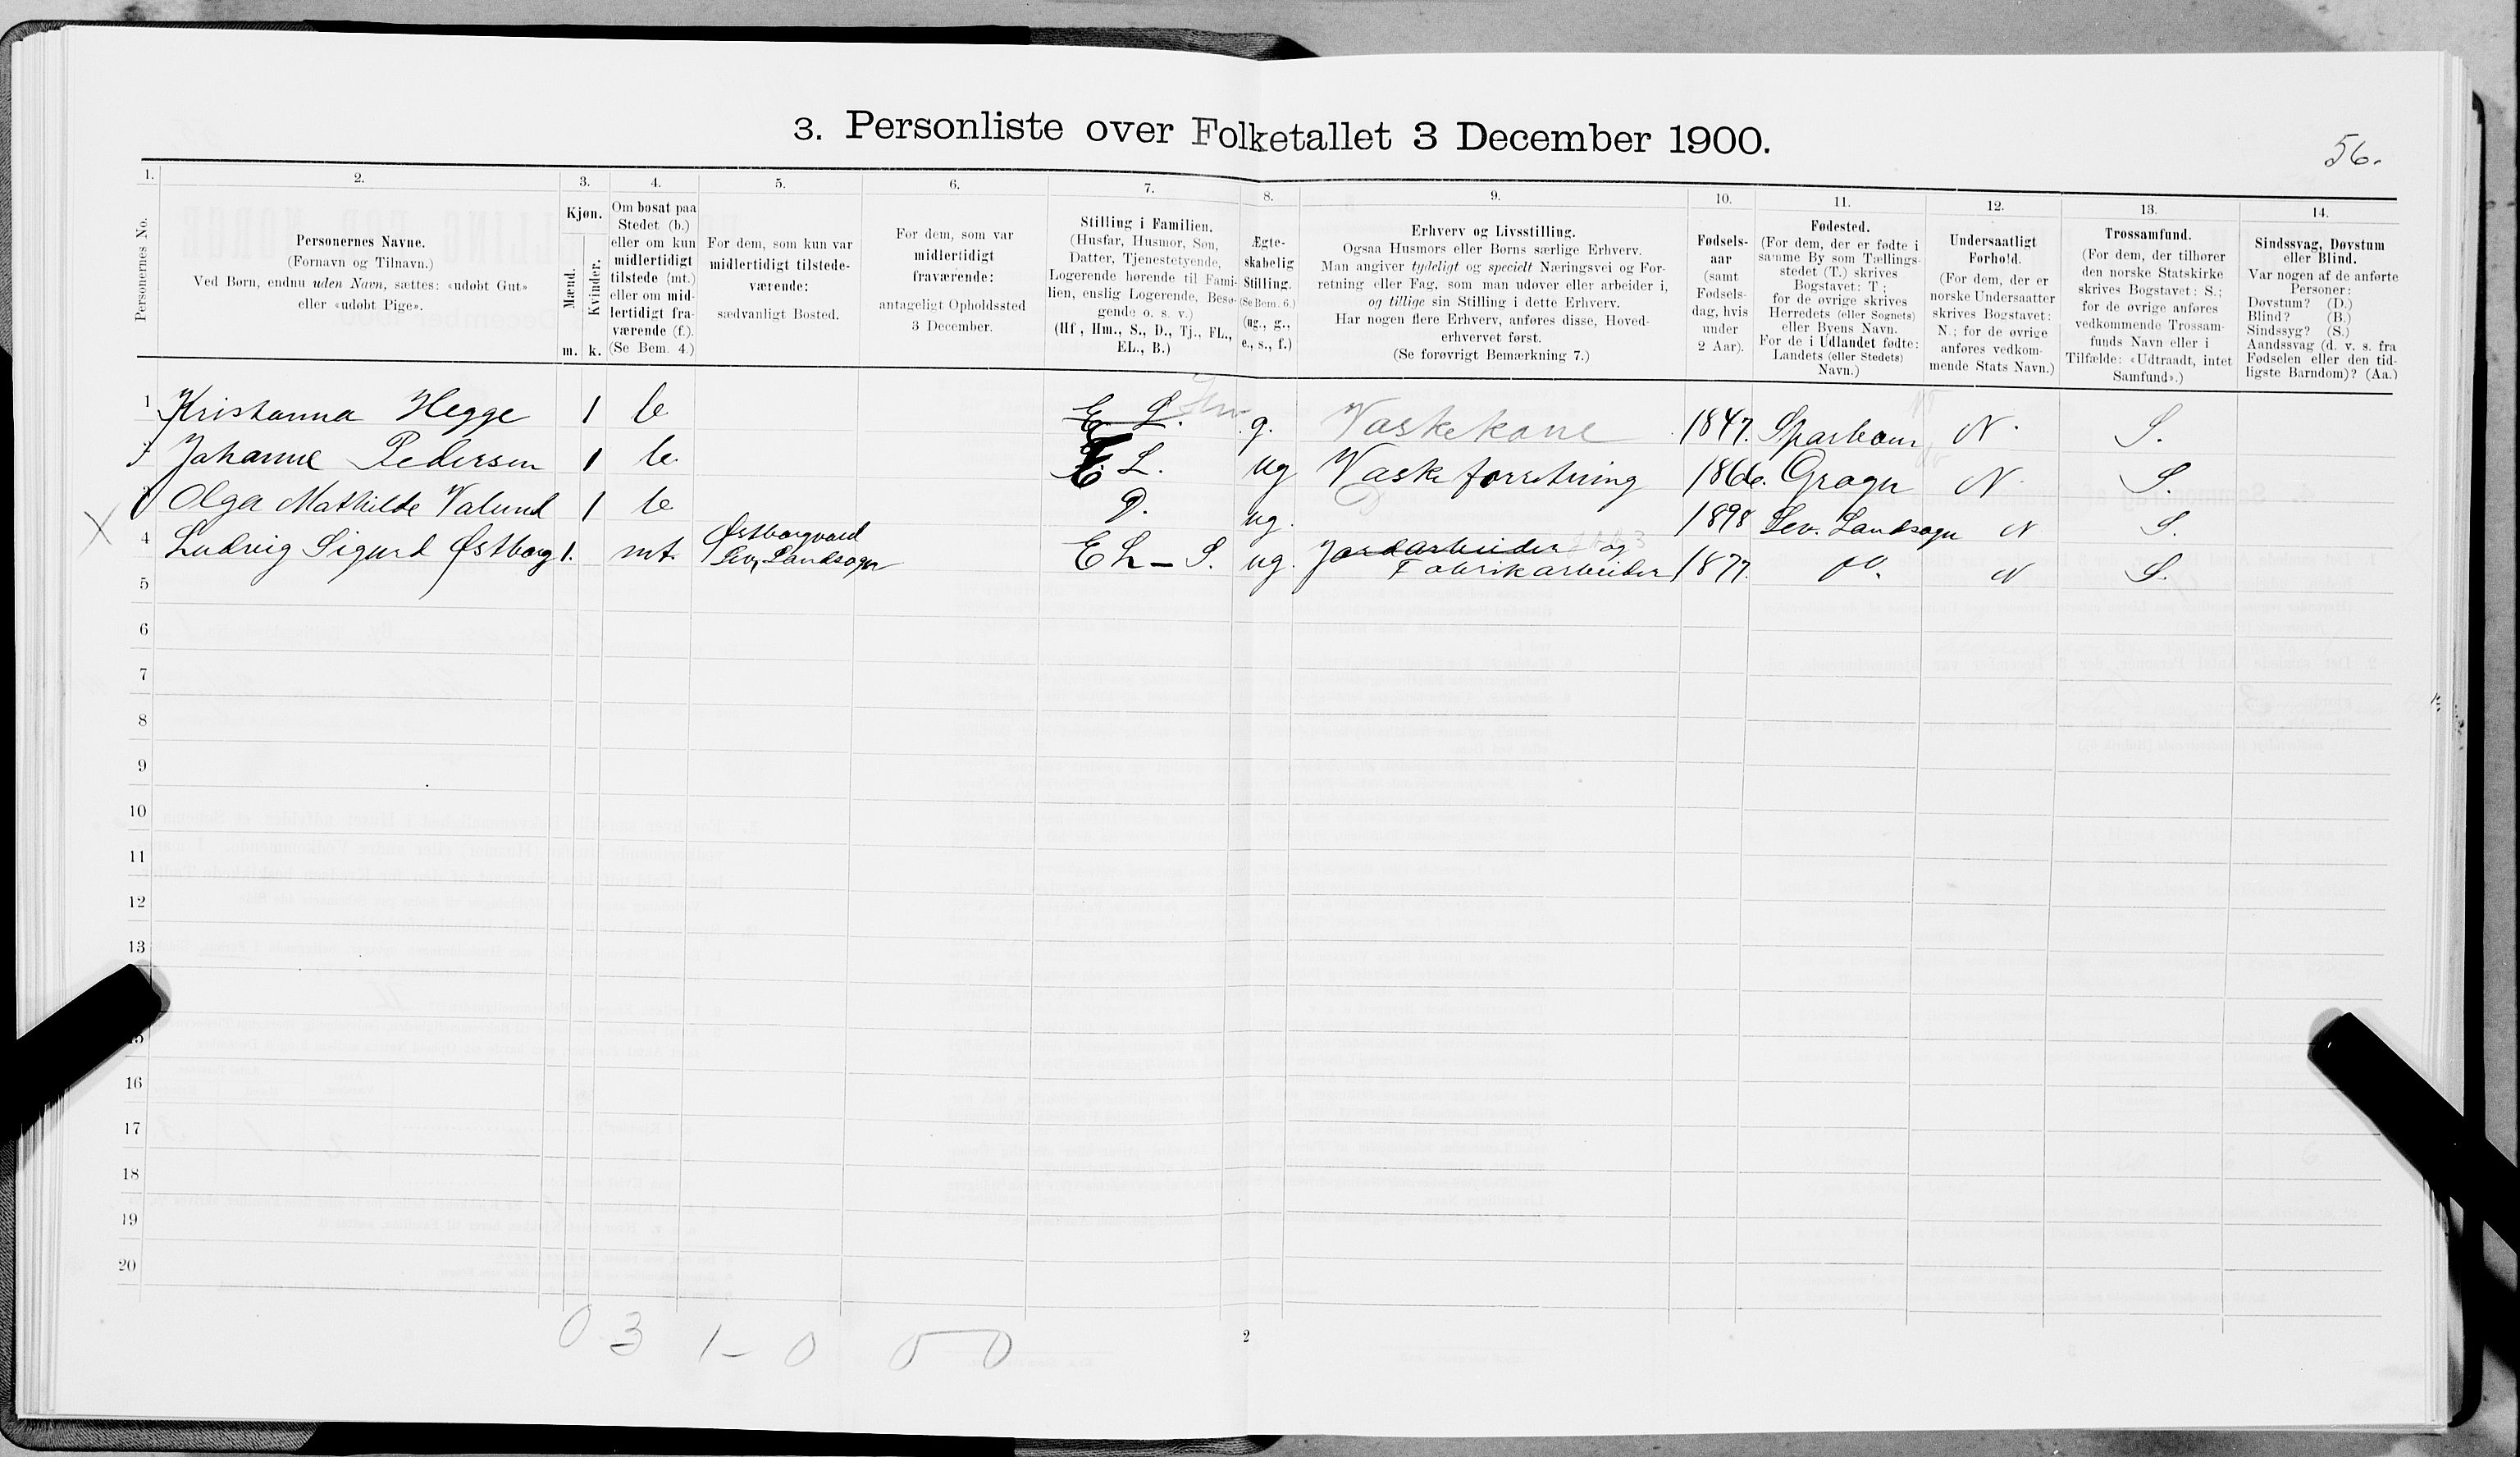 3. Personliste over Folketallet 3 December 1900.
56.
1. 2. 3. 4. 5. 6. 7. 8. 9. 10. 11. 12. 13. 14.
Personernes No.
Personernes Navne.
(Fornavn og Tilnavn.)
Ved Børn, endnu uden Navn, sættes: «udøbt Gut»
eller «udøbt Pige».
Kjøn.
Mænd.
Kvinder.
m. k.
Om bosat paa
Stedet (b.)
eller om kun
midlertidigt
tilstede (mt.)
eller om mid-
lertidigt fra-
værende (f.).
(Se Bem. 4.)
For dem, som kun var
midlertidigt tilstede-
værende:
sædvanligt Bosted.
For dem, som var
midlertidigt
fraværende:
antageligt Opholdssted
3 December.
Stilling i Familien.
(Husfar, Husmor, Søn,
Datter, Tjenestetyende,
Logerende hørende til Fami-
lien, enslig Logerende, Besø-
gende o. s. v.)
(Hf., Hm., S., D., Tj., FL.,
EL., B.)
Ægte-
skabelig
Stilling.
(Se Bem. 6.)
(ug., g.,
e., s., f.)
Erhverv og Livsstilling.
Ogsaa Husmors eller Børns særlige Erhverv.
Man angiver tydeligt og specielt Næringsvei og For-
retning eller Fag, som man udøver eller arbeider i,
og tillige sin Stilling i dette Erhverv.
Har nogen flere Erhverv, anføres disse, Hoved-
erhvervet først.
(Se forøvrigt Bemærkning 7.)
Fødsels-
aar
(samt
Fødsels-
dag, hvis
under
2 Aar).
Fødested.
(For dem, der er fødte i
samme By som Tællings-
stedet (T.) skrives
Bogstavet: T.;
for de øvrige skrives
Herredets (eller Sognets)
eller Byens Navn.
For de i Udlandet fødte:
Landets (eller Stedets)
Navn.)
Undersaatligt
Forhold.
(For dem, der er
norske Undersaatter
skrives Bogstavet:
N.; for de øvrige
anføres vedkom-
mende Stats Navn.)
Trossamfund.
(For dem, der tilhører
den norske Statskirke
skrives Bogstavet: S.;
for de øvrige anføres
vedkommende Trossam-
funds Navn eller i
Tilfælde: «Udtraadt, intet
Samfund».)
Sindssvag, Døvstum
eller Blind.
Var nogen af de anførte
Personer:
Døvstum? (D.)
Blind? (B.)
Sindssyg? (S.)
Aandssvag (d. v. s. fra
Fødselen eller den tid-
ligste Barndom)? (Aa.)
1 Kristianna Hegge 1 b E L. g. Vaskekone 1847. Sparbau N. S.
Johanne Pedersen 1 b. E. L. ug Vaskeforretning 1866. Gragu N. S.
Olga Mathilde Valund 1 b D. ug. 1898 Lev. Landsogn N S.
X 4 Ludvig Sigurd Østborg 1. mt. Østborgvald Lev. Landsogn EL - S. ug. Jordarbeider og Fabrikarbeider 1877. N S.
5
6
7
8
9
10
11
12
13
15
16
17
18
19
20
0 3 1 - 0 0 0
2